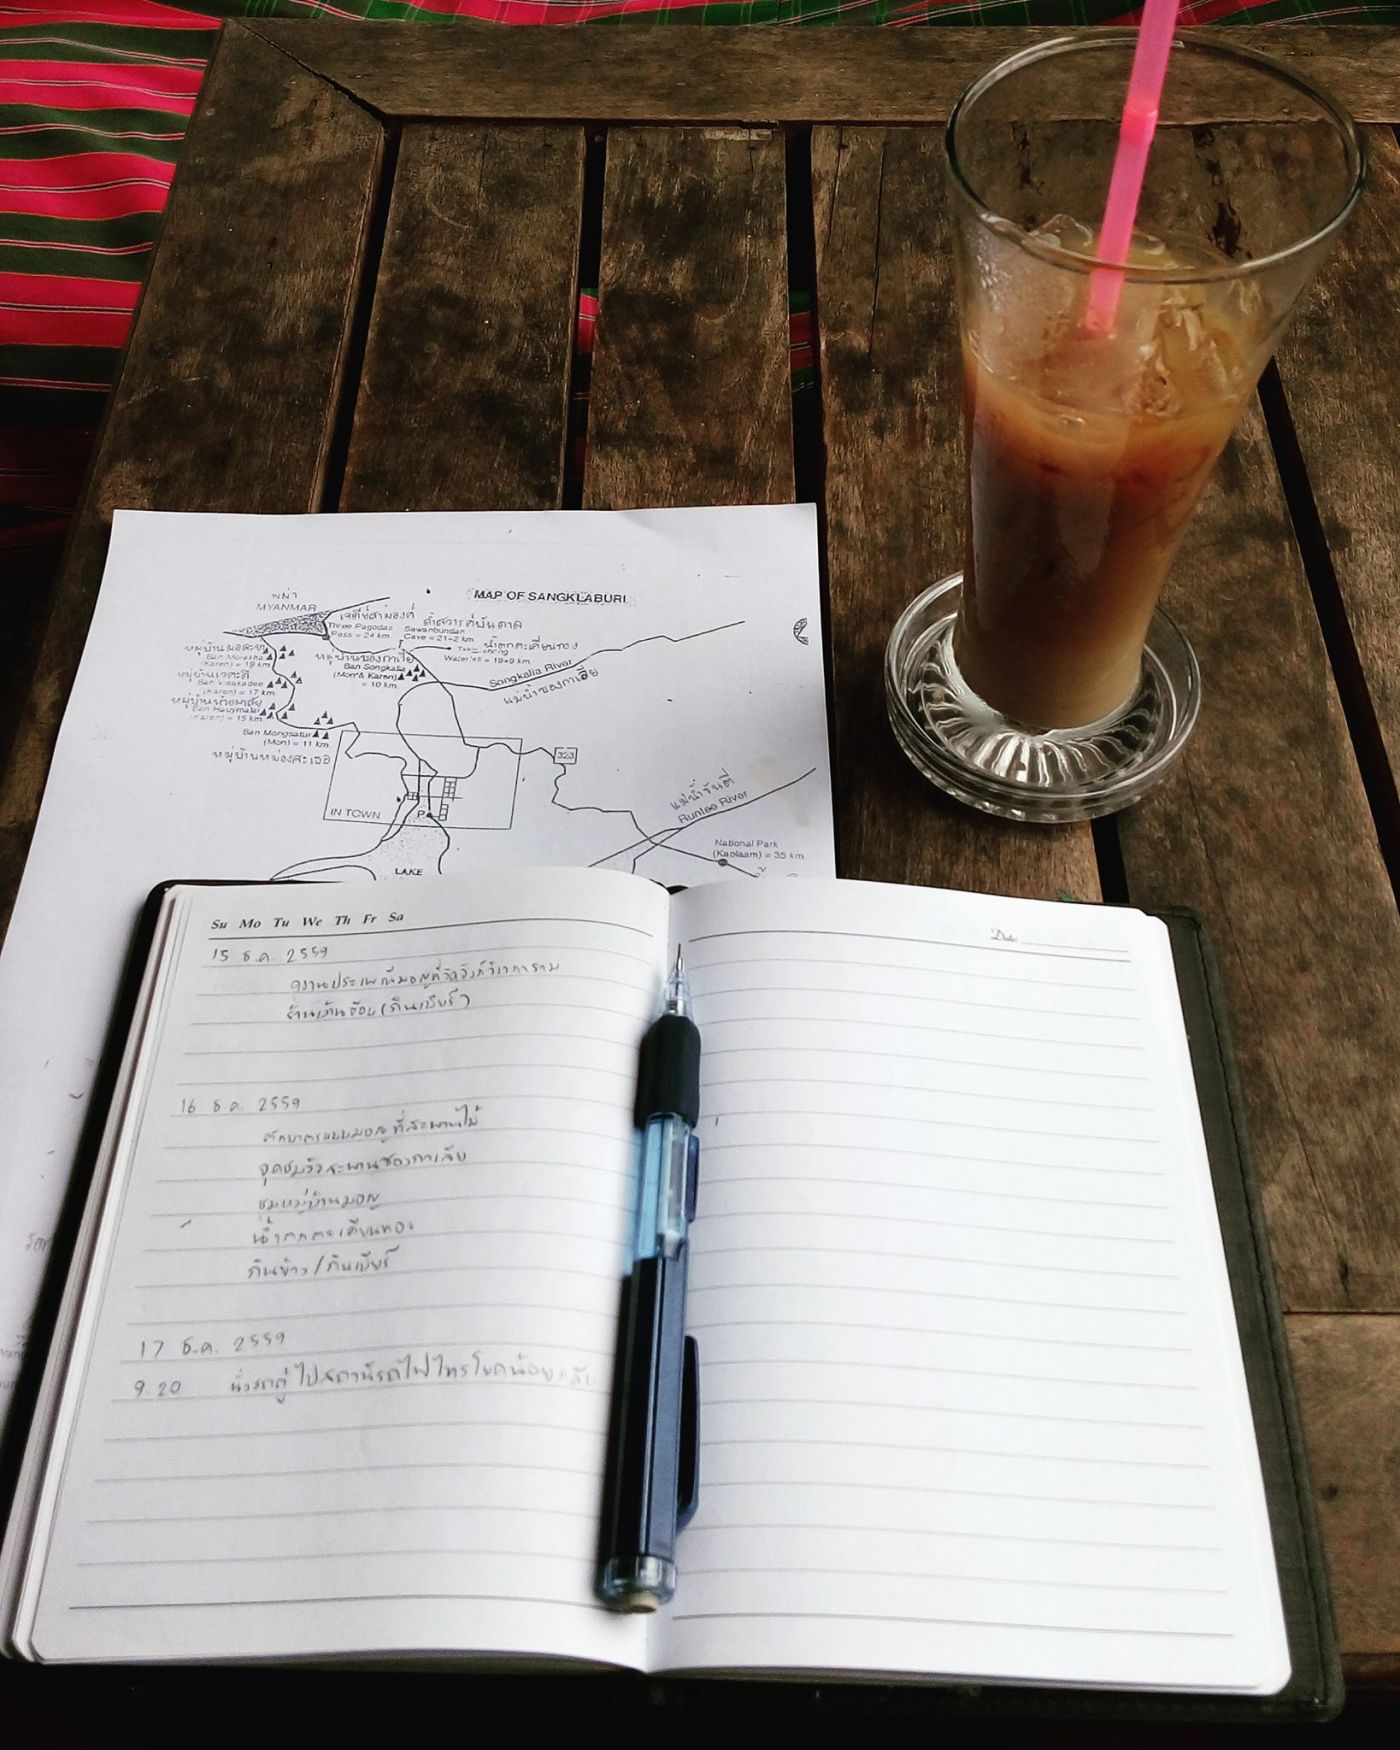 MAP OF SANGKLABURI
พม่า
MYANMAR
เจดีย์สามองค์
Three Pagodas
Pass = 24 km
ถ้ำสวรรค์บันดาล
Sawanbundan
Cave = 21+2 km
น้ำตกตะเคียนทอง
Waterfalls = 19+9 km
Ban Morakha
(Karen) = 19 km
(Karen) = 17 km
(Karen) = 15 km
หมู่บ้านซองกาเรีย
Ban Songkalia
(Mon & Karen)
= 10 km
Songkalia River
แม่น้ำซองกาเรีย
Ban Mongsatur
(Mon) = 11 km
หมู่บ้านหม่องสะเธอ
323
IN TOWN
P.
LAKE
แม่น้ำรันตี
Runtee River
National Park
(Kaolaam) = 35 km
Su Mo Tu We Th Fr Sa
Date
15 ธ.ค. 2559
งานประเพณีมอญที่วัดวังก์วิเวการาม
(กินเบียร์)
16 ธ.ค. 2559
ตักบาตรแบบมอญที่สะพานไม้
จุดชมวิวสะพานซองกาเลีย
ชมหมู่บ้านมอญ
น้ำตกตะเคียนทอง
กินข้าว / กินเบียร์
17 ธ.ค. 2559
9.20 นั่งรถตู้ไปสถานีรถไฟไทรโยคน้อย